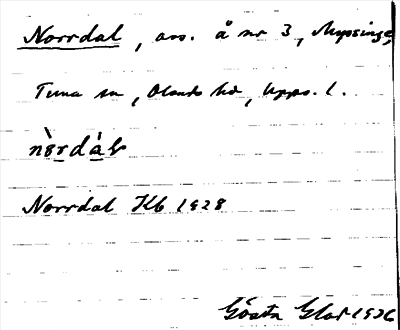 Norrdal, avs. å nr 3, Mysinge,
Tuna sn, Olands hd, Upps. l.
nòrdàl
Norrdal Kb 1928
Gösta Glas 1926